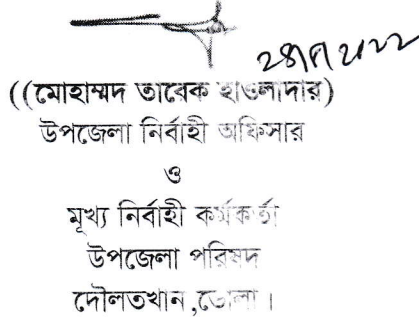 ((মোহাম্মদ তারেক হাওলাদার)
উপজেলা নির্বাহী অফিসার
ও
মূখ্য নির্বাহী কর্মকর্তা
উপজেলা পরিষদ
দৌলতখান,ভোলা।